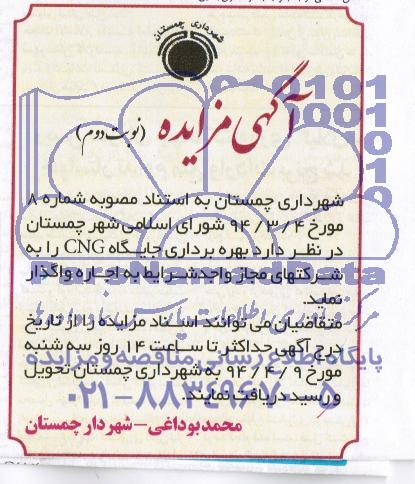 شهرداری چمستان
آگهی مزایده
(نوبت دوم)
شهرداری چمستان به استناد مصوبه شماره ۸
مورخ ۹۴/۳/۴ شورای اسلامی شهر چمستان
در نظر دارد بهره برداری جایگاه CNG را به
شرکتهای مجاز واجد شرایط به اجاره واگذار
نماید.
متقاضیان می توانند اسناد مزایده را از تاریخ
درج آگهی حداکثر تا ساعت ۱۴ روز سه شنبه
مورخ ۹۴/۴/۹ به شهرداری چمستان تحویل
و رسید دریافت نمایند.
محمد بوداغی – شهردار چمستان
ParsNamadData
پایگاه اطلاع رسانی مناقصه و مزایده
۰۲۱-۸۸۳۴۹۶۷۰-۵